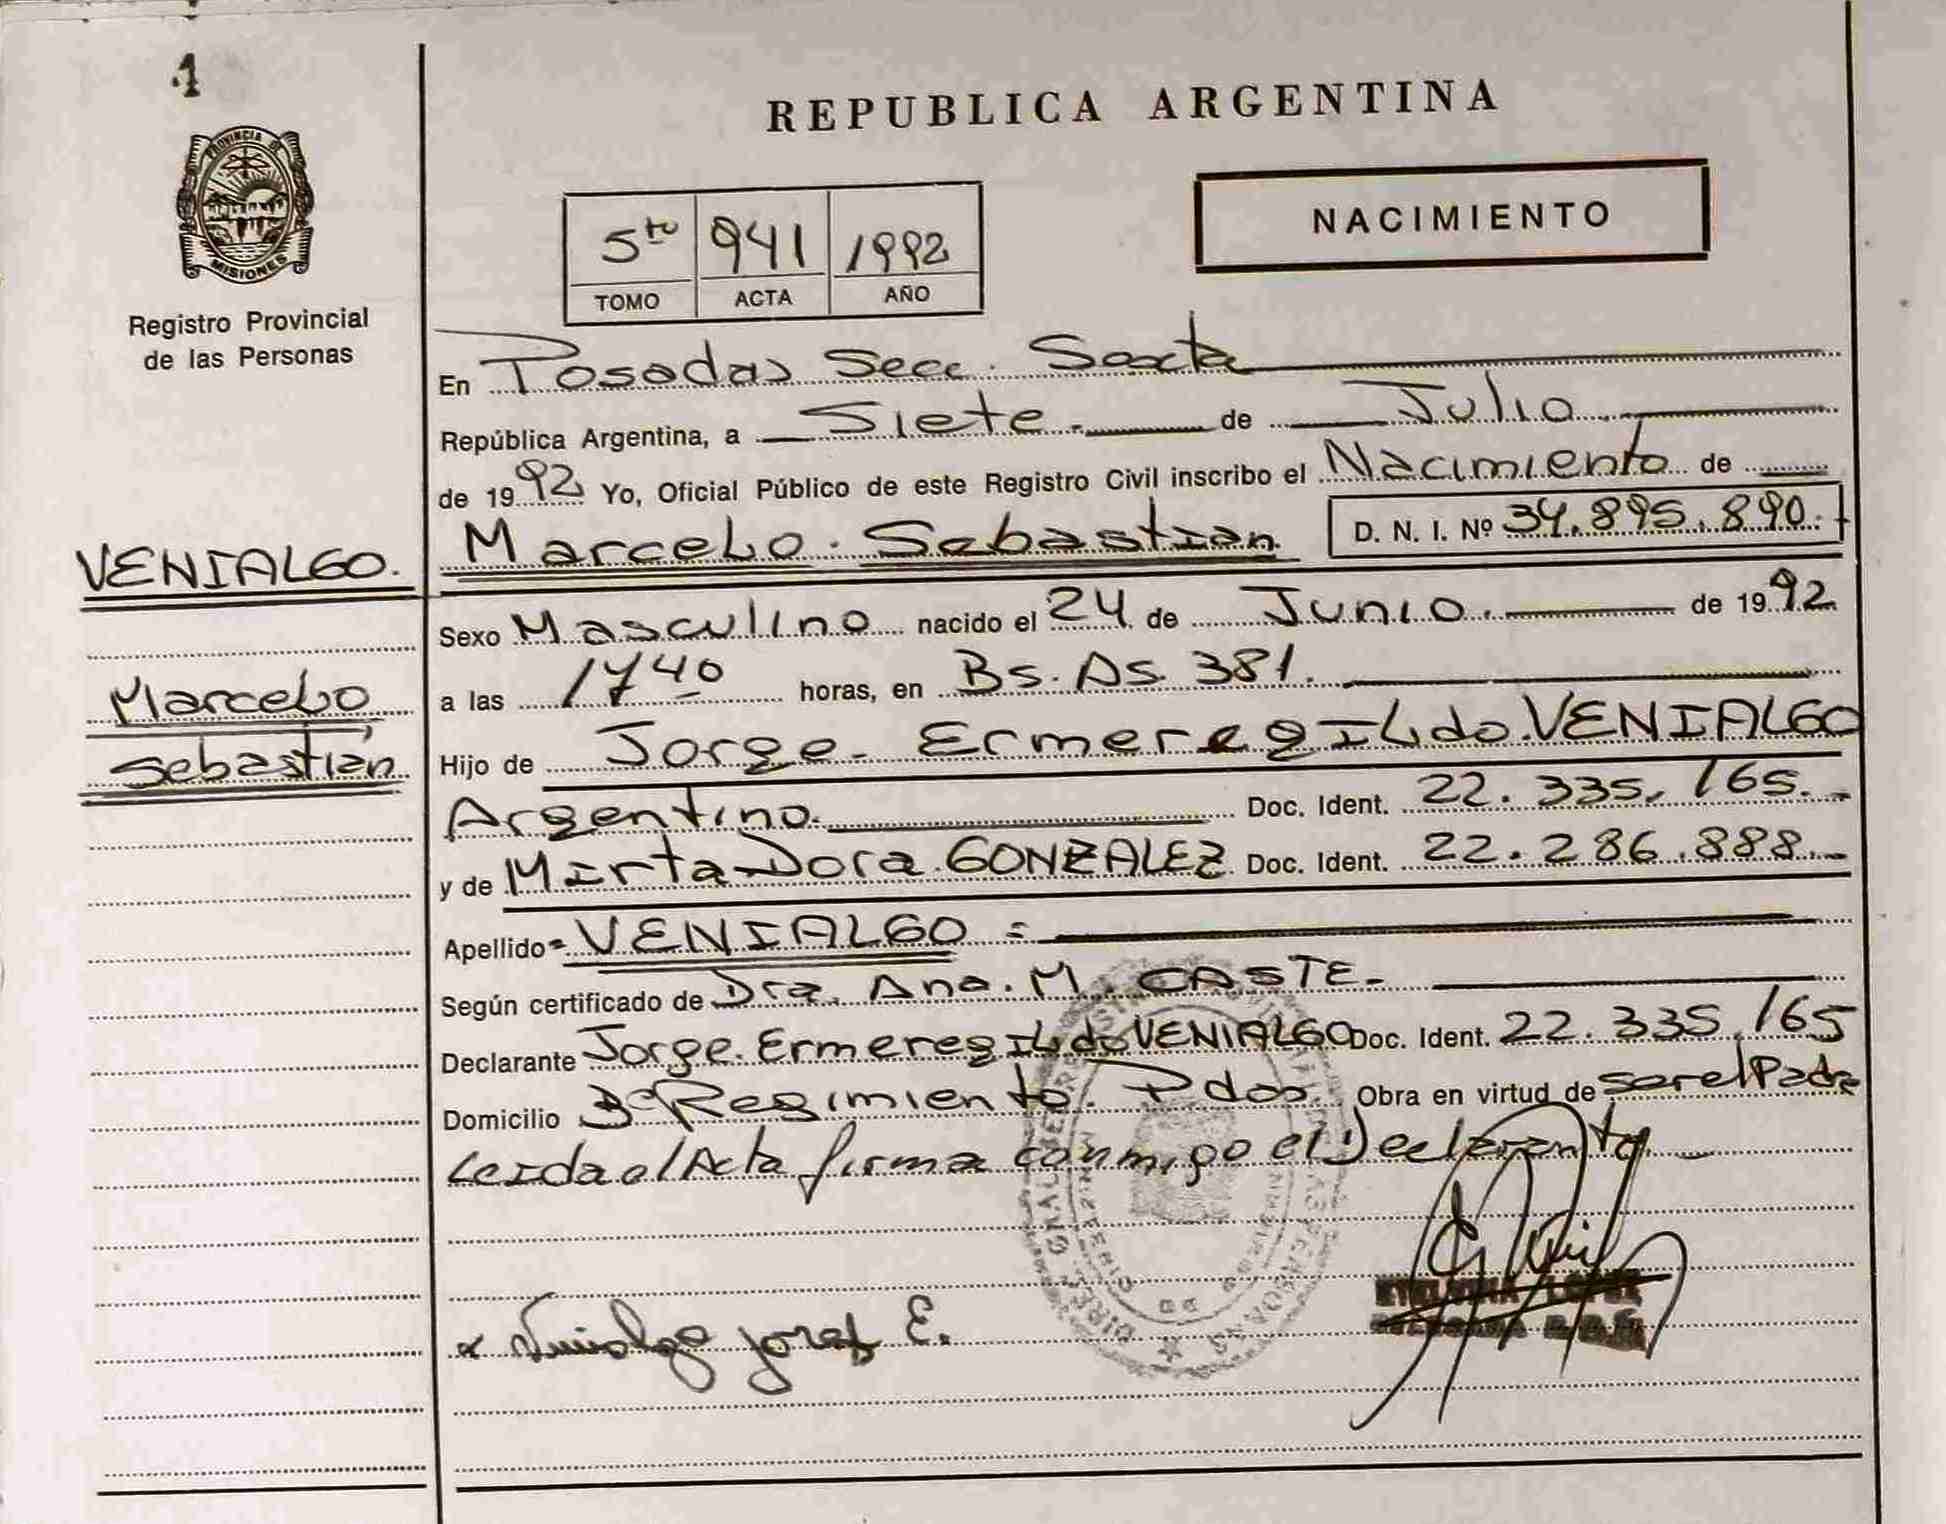 1
PROVINCIA DE
MISIONES
Registro Provincial
de las Personas
VENIALGO.
Marcelo
Sebastián
REPUBLICA ARGENTINA
NACIMIENTO
5to 941 1992
TOMO ACTA AÑO
En Posadas Secc. Sexta
República Argentina, a Siete de Julio
de 1992 Yo, Oficial Público de este Registro Civil inscribo el Nacimiento de
Marcelo Sebastian D. N. I. Nº 34.895.890.
Sexo Masculino nacido el 24 de Junio. de 1992
a las 1740 horas, en Bs. As. 381.
Hijo de Jorge Ermeregildo VENIALGO
Argentino. Doc. Ident. 22.335.165.
y de Mirta Dora GONZALEZ Doc. Ident. 22.286.888.
Apellido VENIALGO
Según certificado de Dra. Ana. M. CASTE.
Declarante Jorge Ermeregildo VENIALGO Doc. Ident. 22.335.165
Domicilio 3º Regimiento. Pdas. Obra en virtud de ser el Padre
Leida el Acta firma conmigo el Declarante.
Venialgo Jorge E.